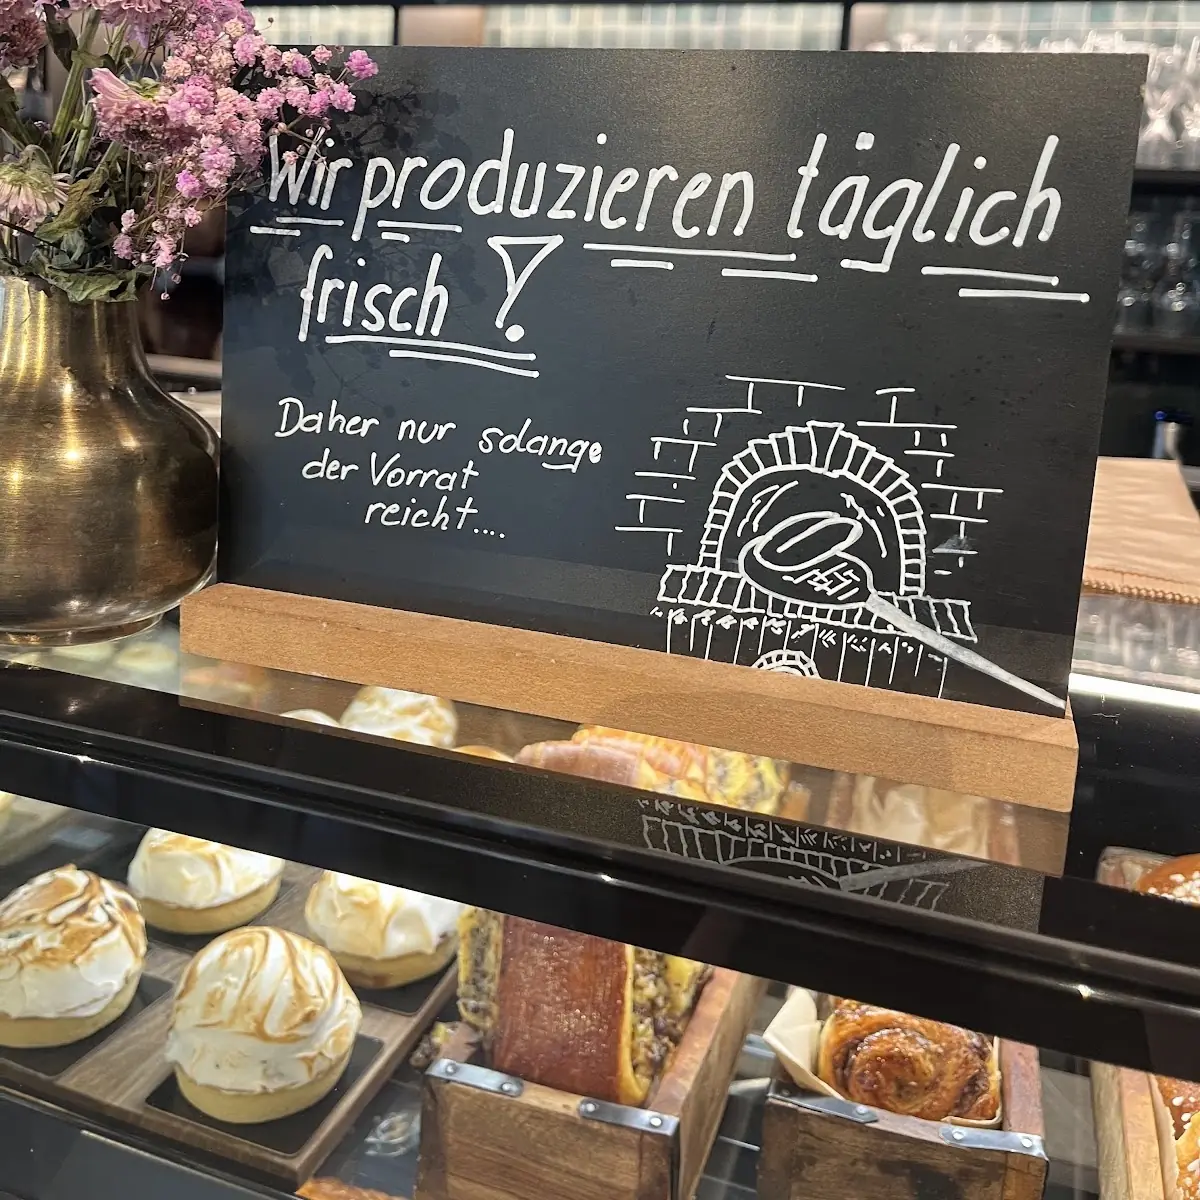 Wir produzieren täglich
frisch!
Daher nur solange
der Vorrat
reicht....